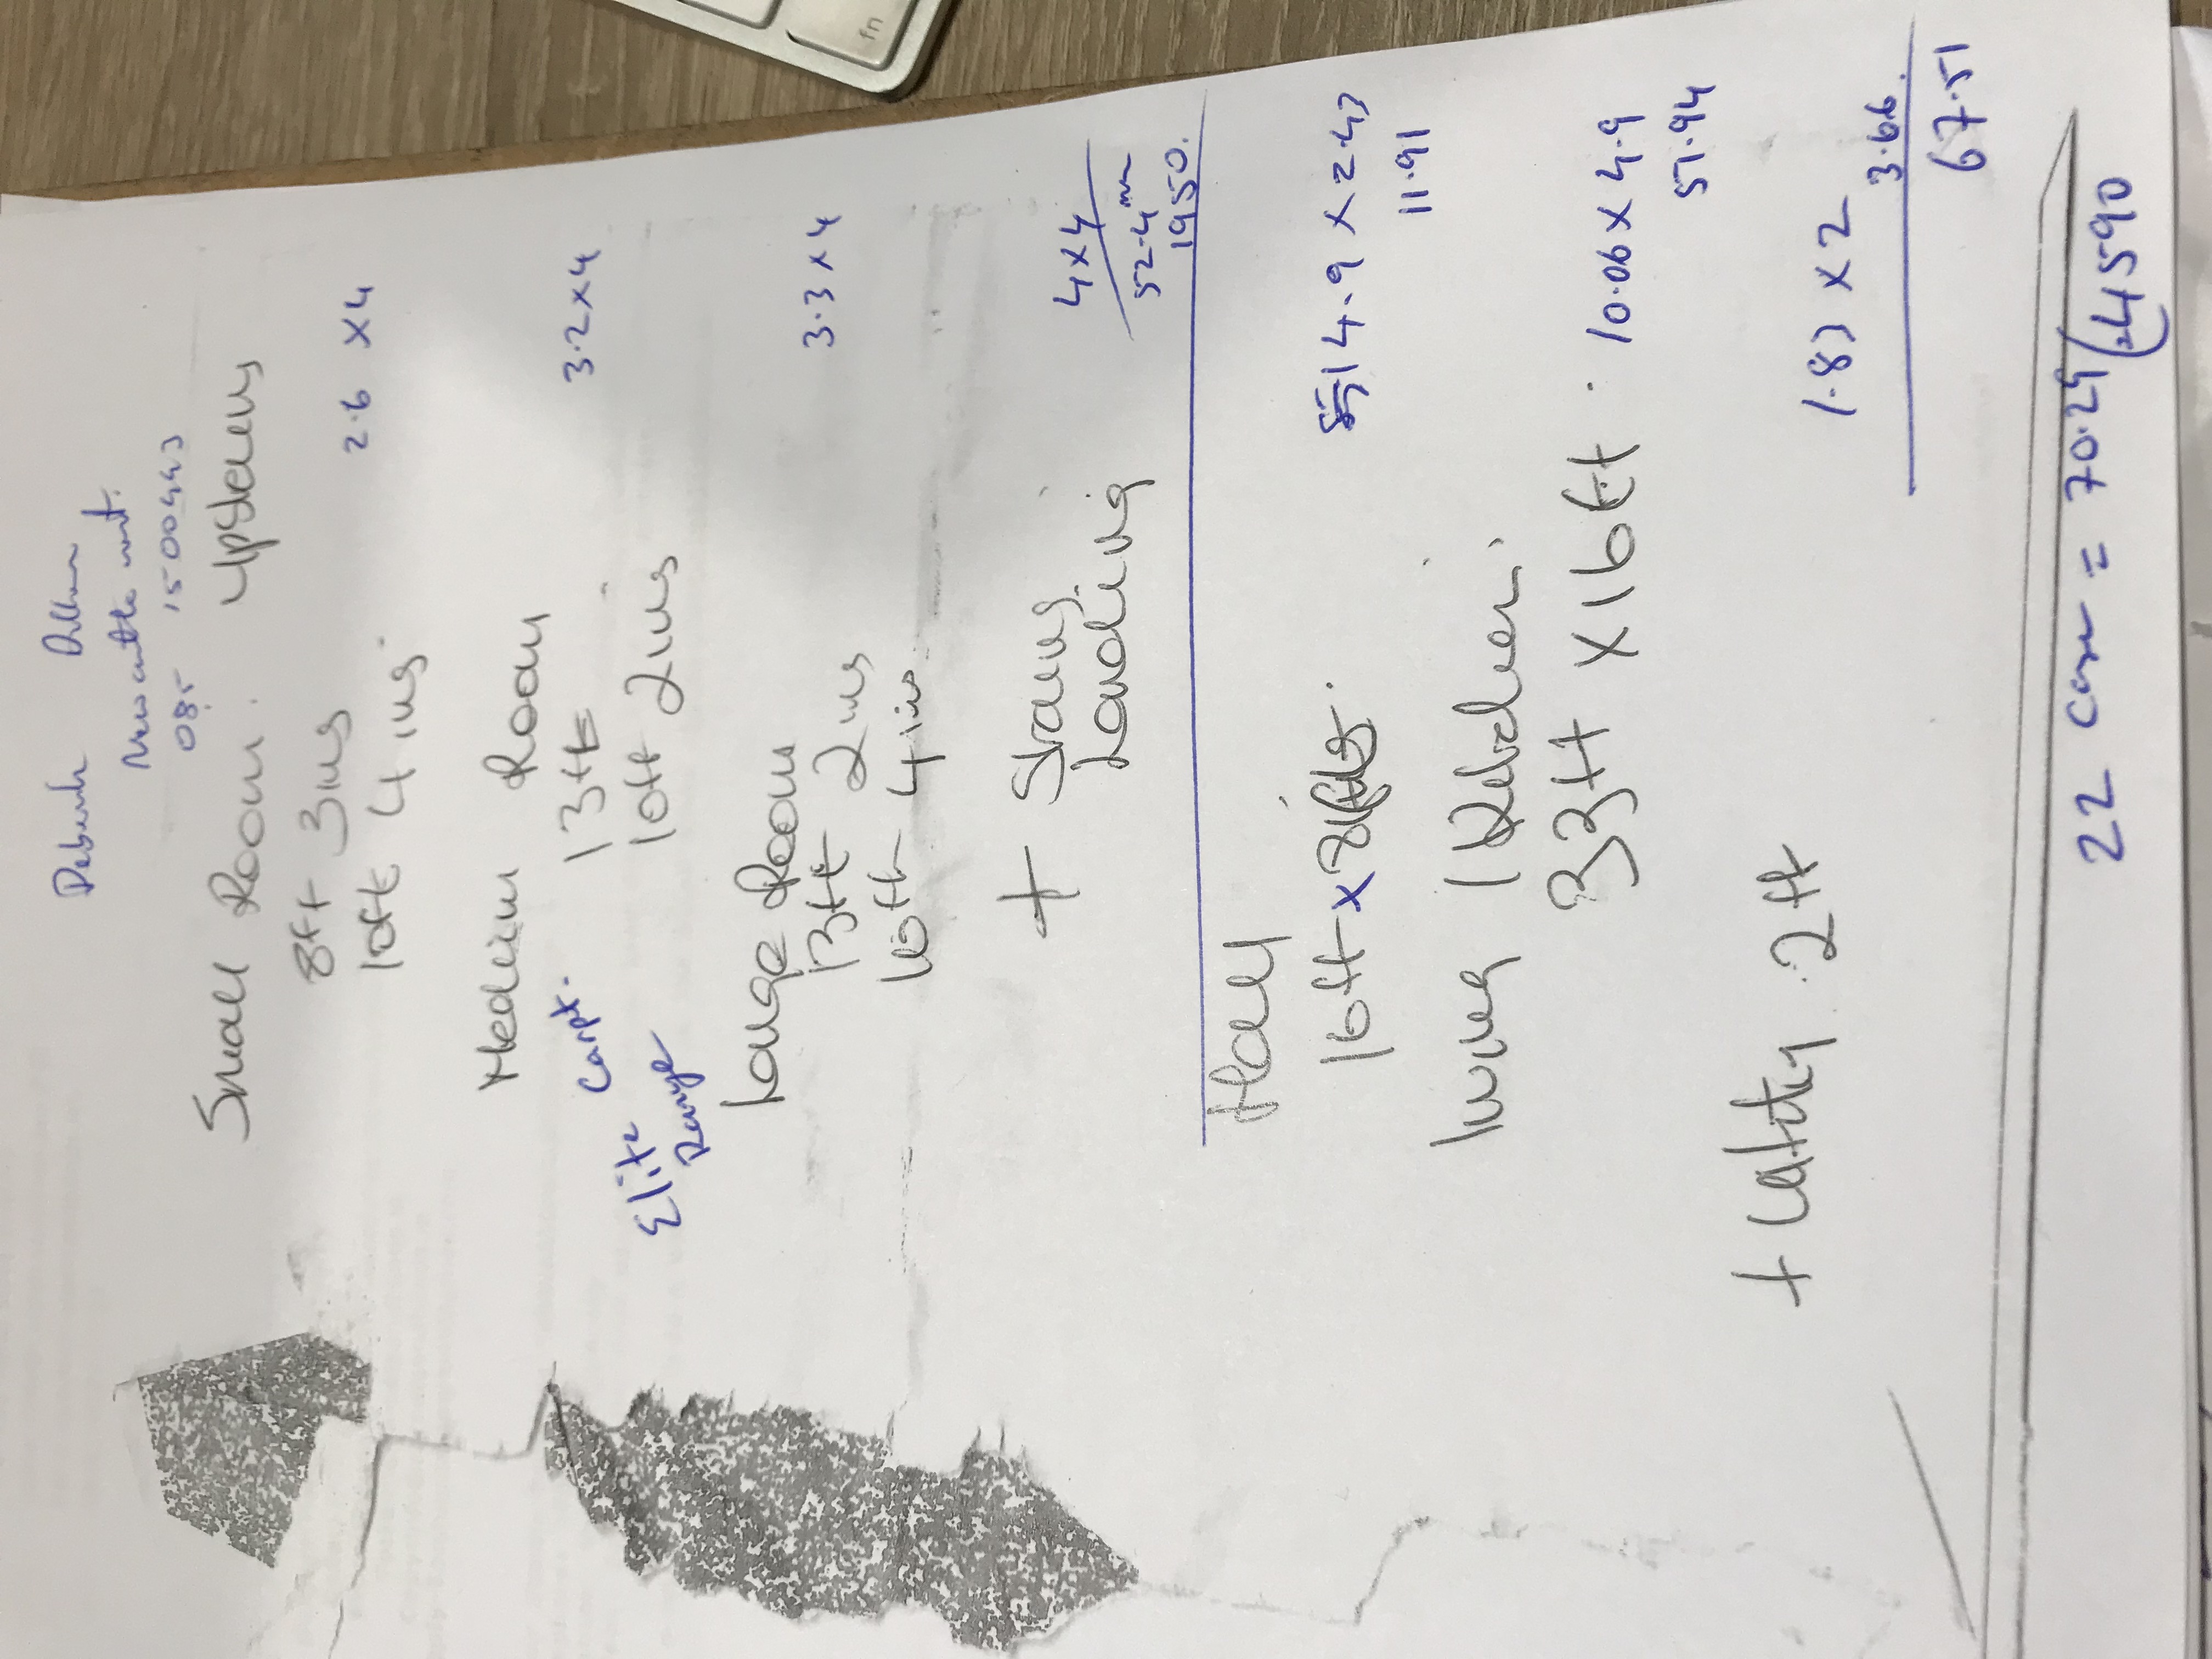 Deborah Dillon
Newcastle west.
085 1500443
Small Room. upstairs
8ft 3ins
10ft 4 ins
2.6 x4
Medium Room
13ft
10ft 2ins
3.2x4
Elite Carpt.
Range
Large Room
13ft 2ins
10ft 4ins
3.3 x 4
+ Stairs.
Landing
4x4
52.4
1950.
Hall
16ft x 8
4.9 x 2.43
11.91
living / Kitchen.
33ft x16ft.
10.06 x 4.9
51.94
+ utility 2ft
1.83 x 2
3.66
67.51
22 = 70.24
4590
fn